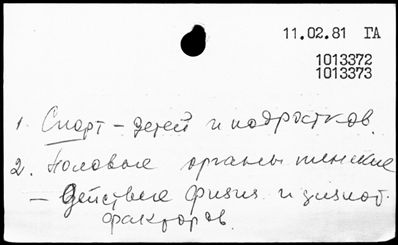 11.02.81 ГА
1013372
1013373
1. Спорт – детей и подростков.
2. Половые органы женские
– Действие физич. и физиол.
факторов.